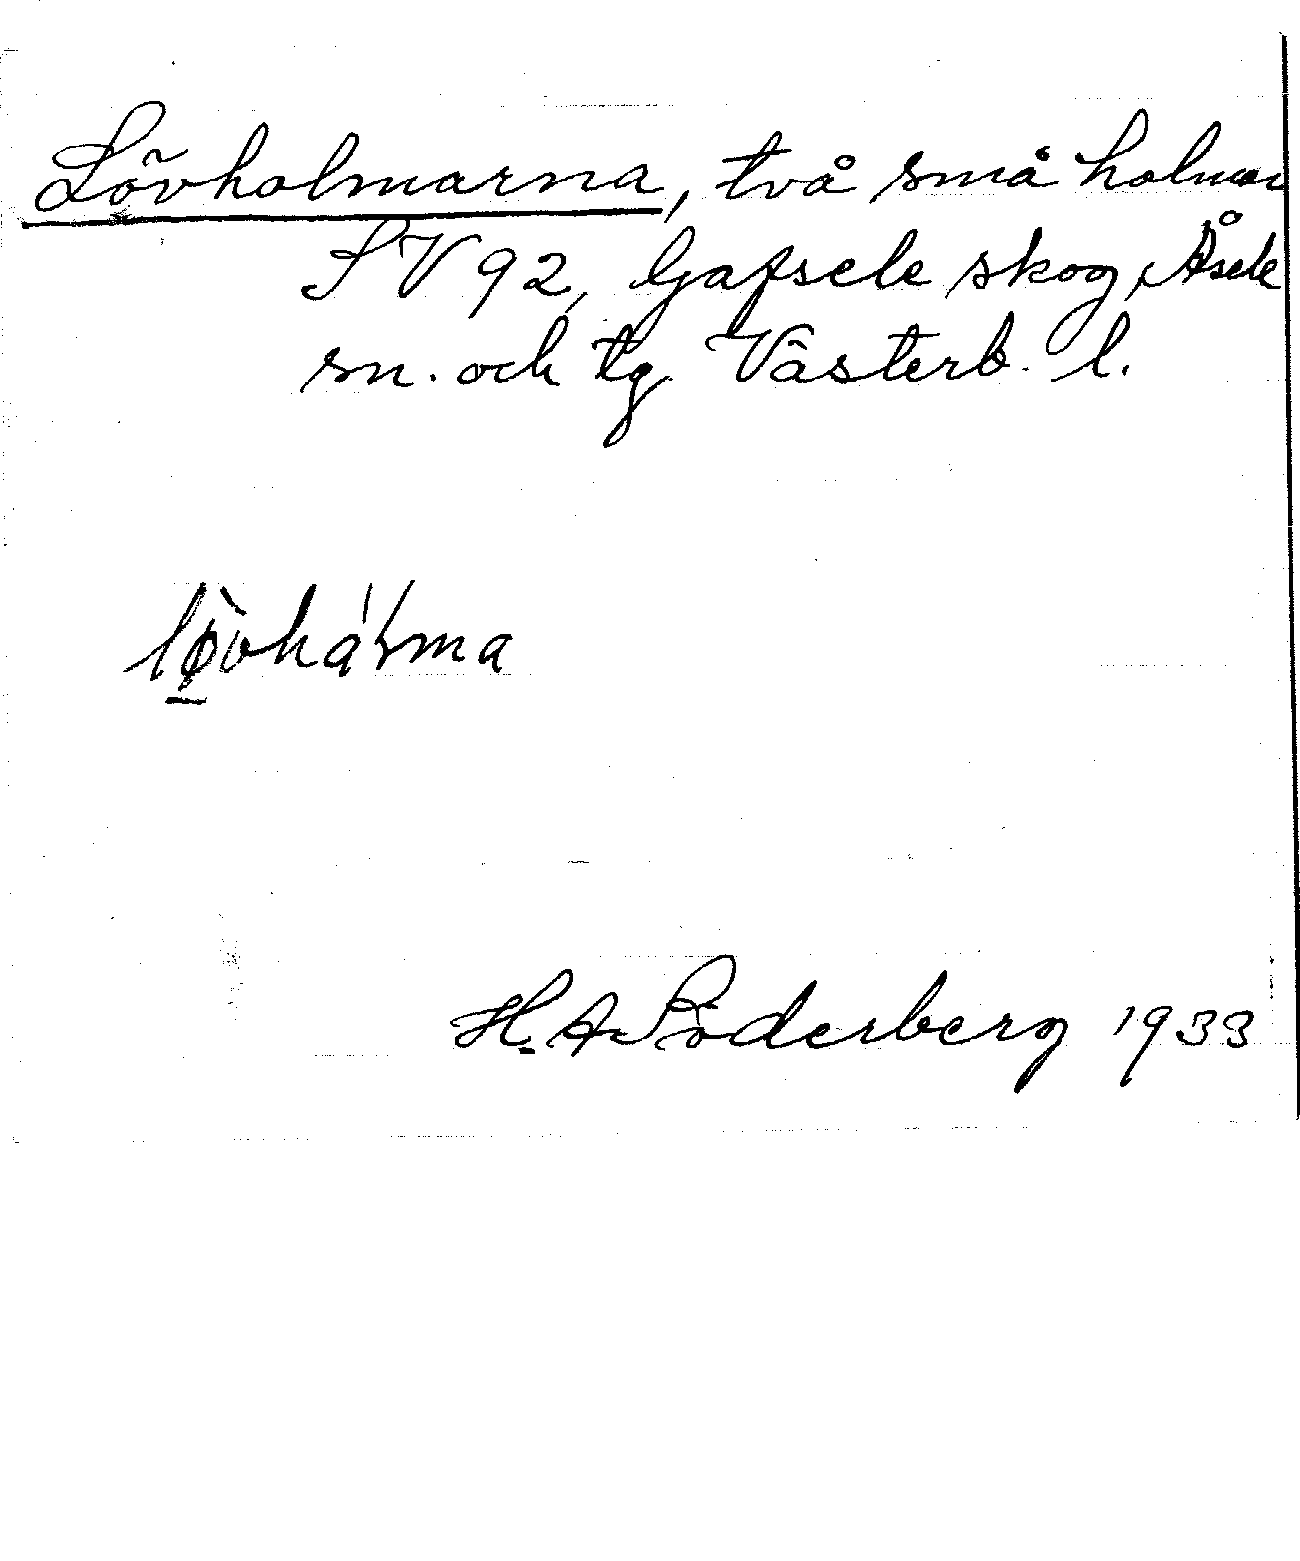 Lövholmarna, två små holmar
SV 92, Gafsele skog, Åsele
sn. och tg. Västerb. l.
H. A. Söderberg 1933